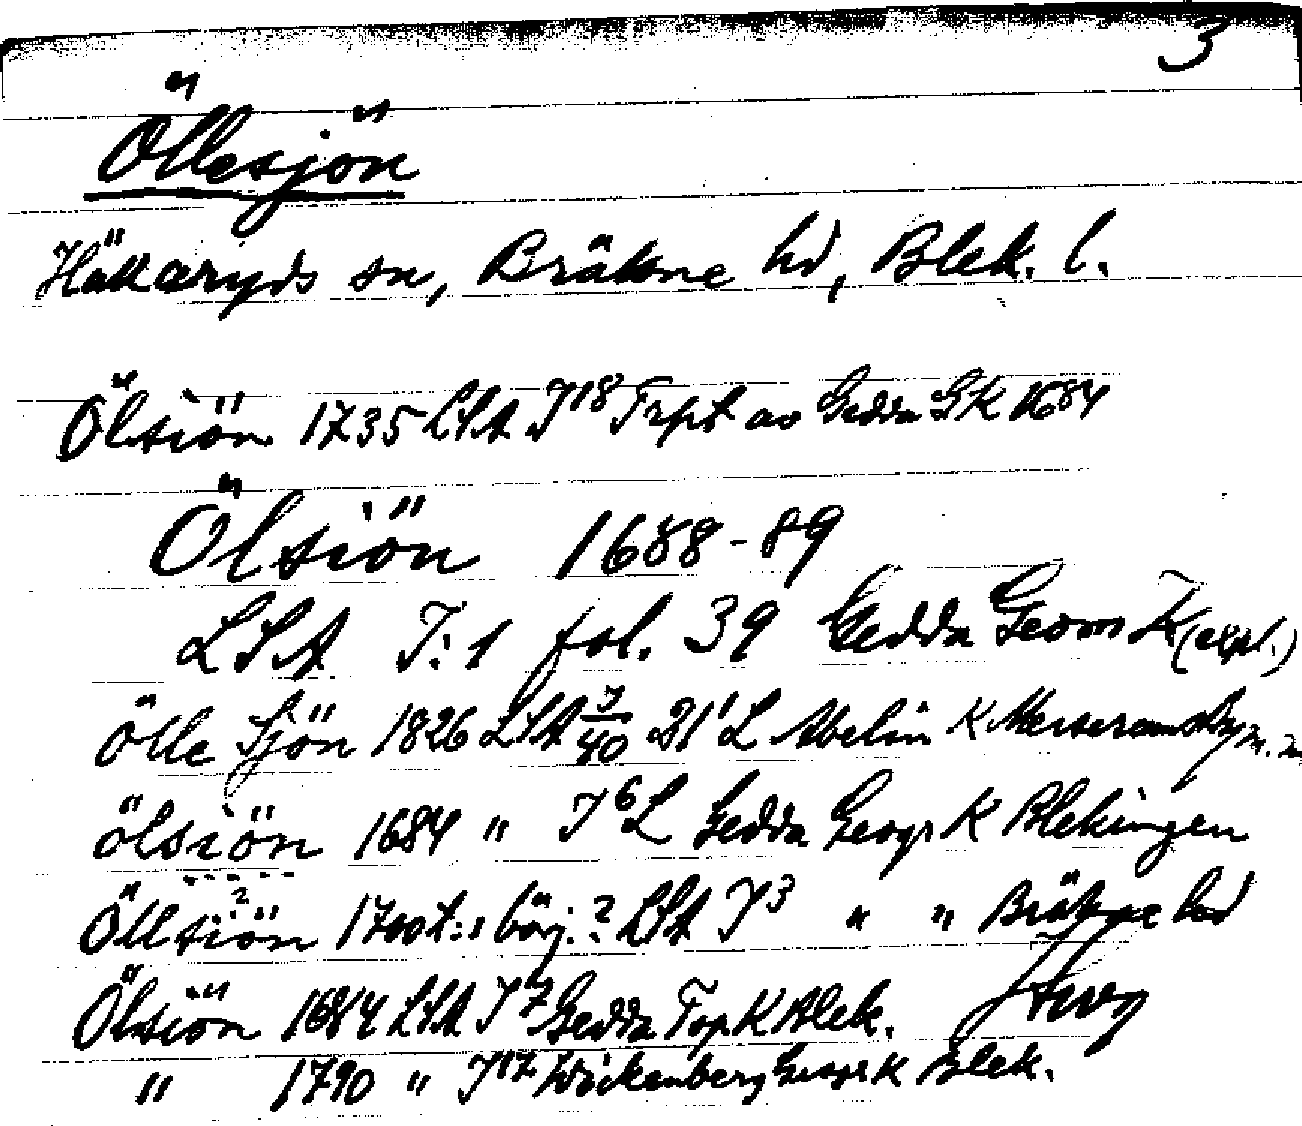 3
Öllesjön
Hällaryds sn, Bräkne hd, Blek. l.
Ölsiön 1735 LSA I18 Trpt av Gedda GK 1684
Ölsiön 1688-89
LSA I:1 fol. 39 Gedda Geom K (expl.)
Ölle Sjön 1826 LSA 7/40 21' L Abelin K m.m
ölsiön 1684 " I6 L Gedda Geogr K Blekingen
Öllsiön ? 1700t:s börj.? LSA I3 " " Bräkne hd
Ölsiön 1684 LSA I7 Gedda Top K Blek.
" 1790 " I17 Wickenberg Geogr K Blek.